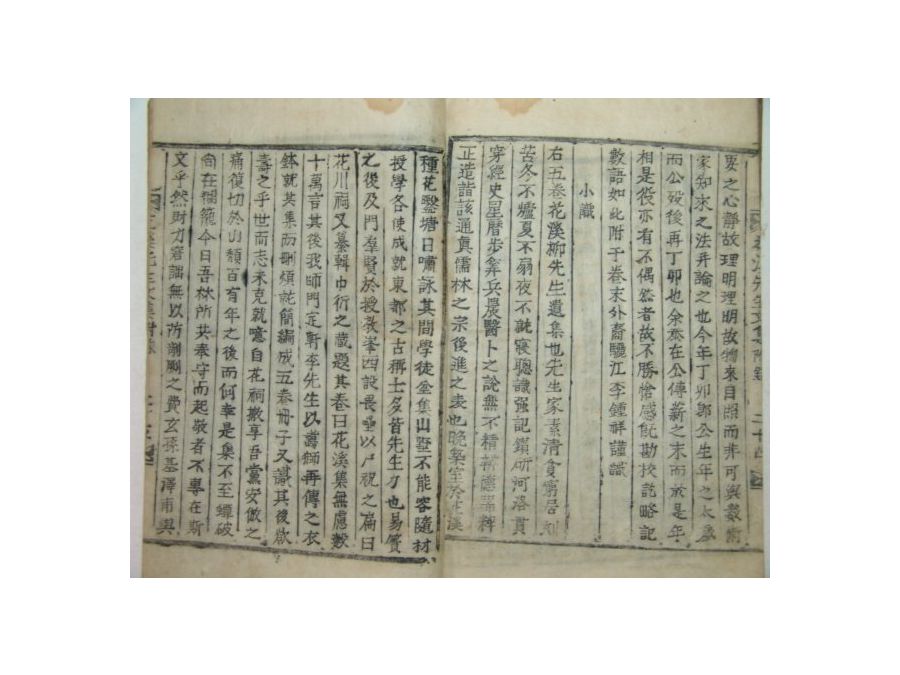 要之心靜故理明理明故物來自照而非可與數術
家知來之法幷論之也今年丁卯卽公生年之太歲
而公歿後再丁卯也余忝在公傳薪之末而於是年
相是役亦有不偶然者故不勝愴感旣勘校訖略記
數語如此附于卷末外裔驪江李鍾祥謹識
小識
右五卷花溪柳先生遺集也先生家素清貧窮居刻
苦冬不爐夏不扇夜不就寢聰識强記鑽研河洛貫
穿經史星曆步筭兵農醫卜之說無不精
正造詣該通眞儒林之宗後進之表也晩築室於花溪
種花鑿塘日嘯詠其間學徒坌集山墅不能容隨材
授學各使成就東都之古稱士多皆先生力也易簀
之後及門羣賢於授敎峯四設畏壘以尸祝之扁曰
花川祠又纂輯巾衍之藏題其卷曰花溪集無慮數
十萬言其後我師門定軒李先生以舊獅再傳之衣
鉢就其集而刪煩就簡編成五卷冊子又識其後欲
壽之乎世而志未克就噫自花祠撤享吾黨安倣之
痛復切於山頹百有年之後而何幸是集不至蟫破
尙在欄籠今日吾林所共奉守而起敬者不專在斯
文乎然財力窘詘無以防剞劂之費玄孫基澤甫與